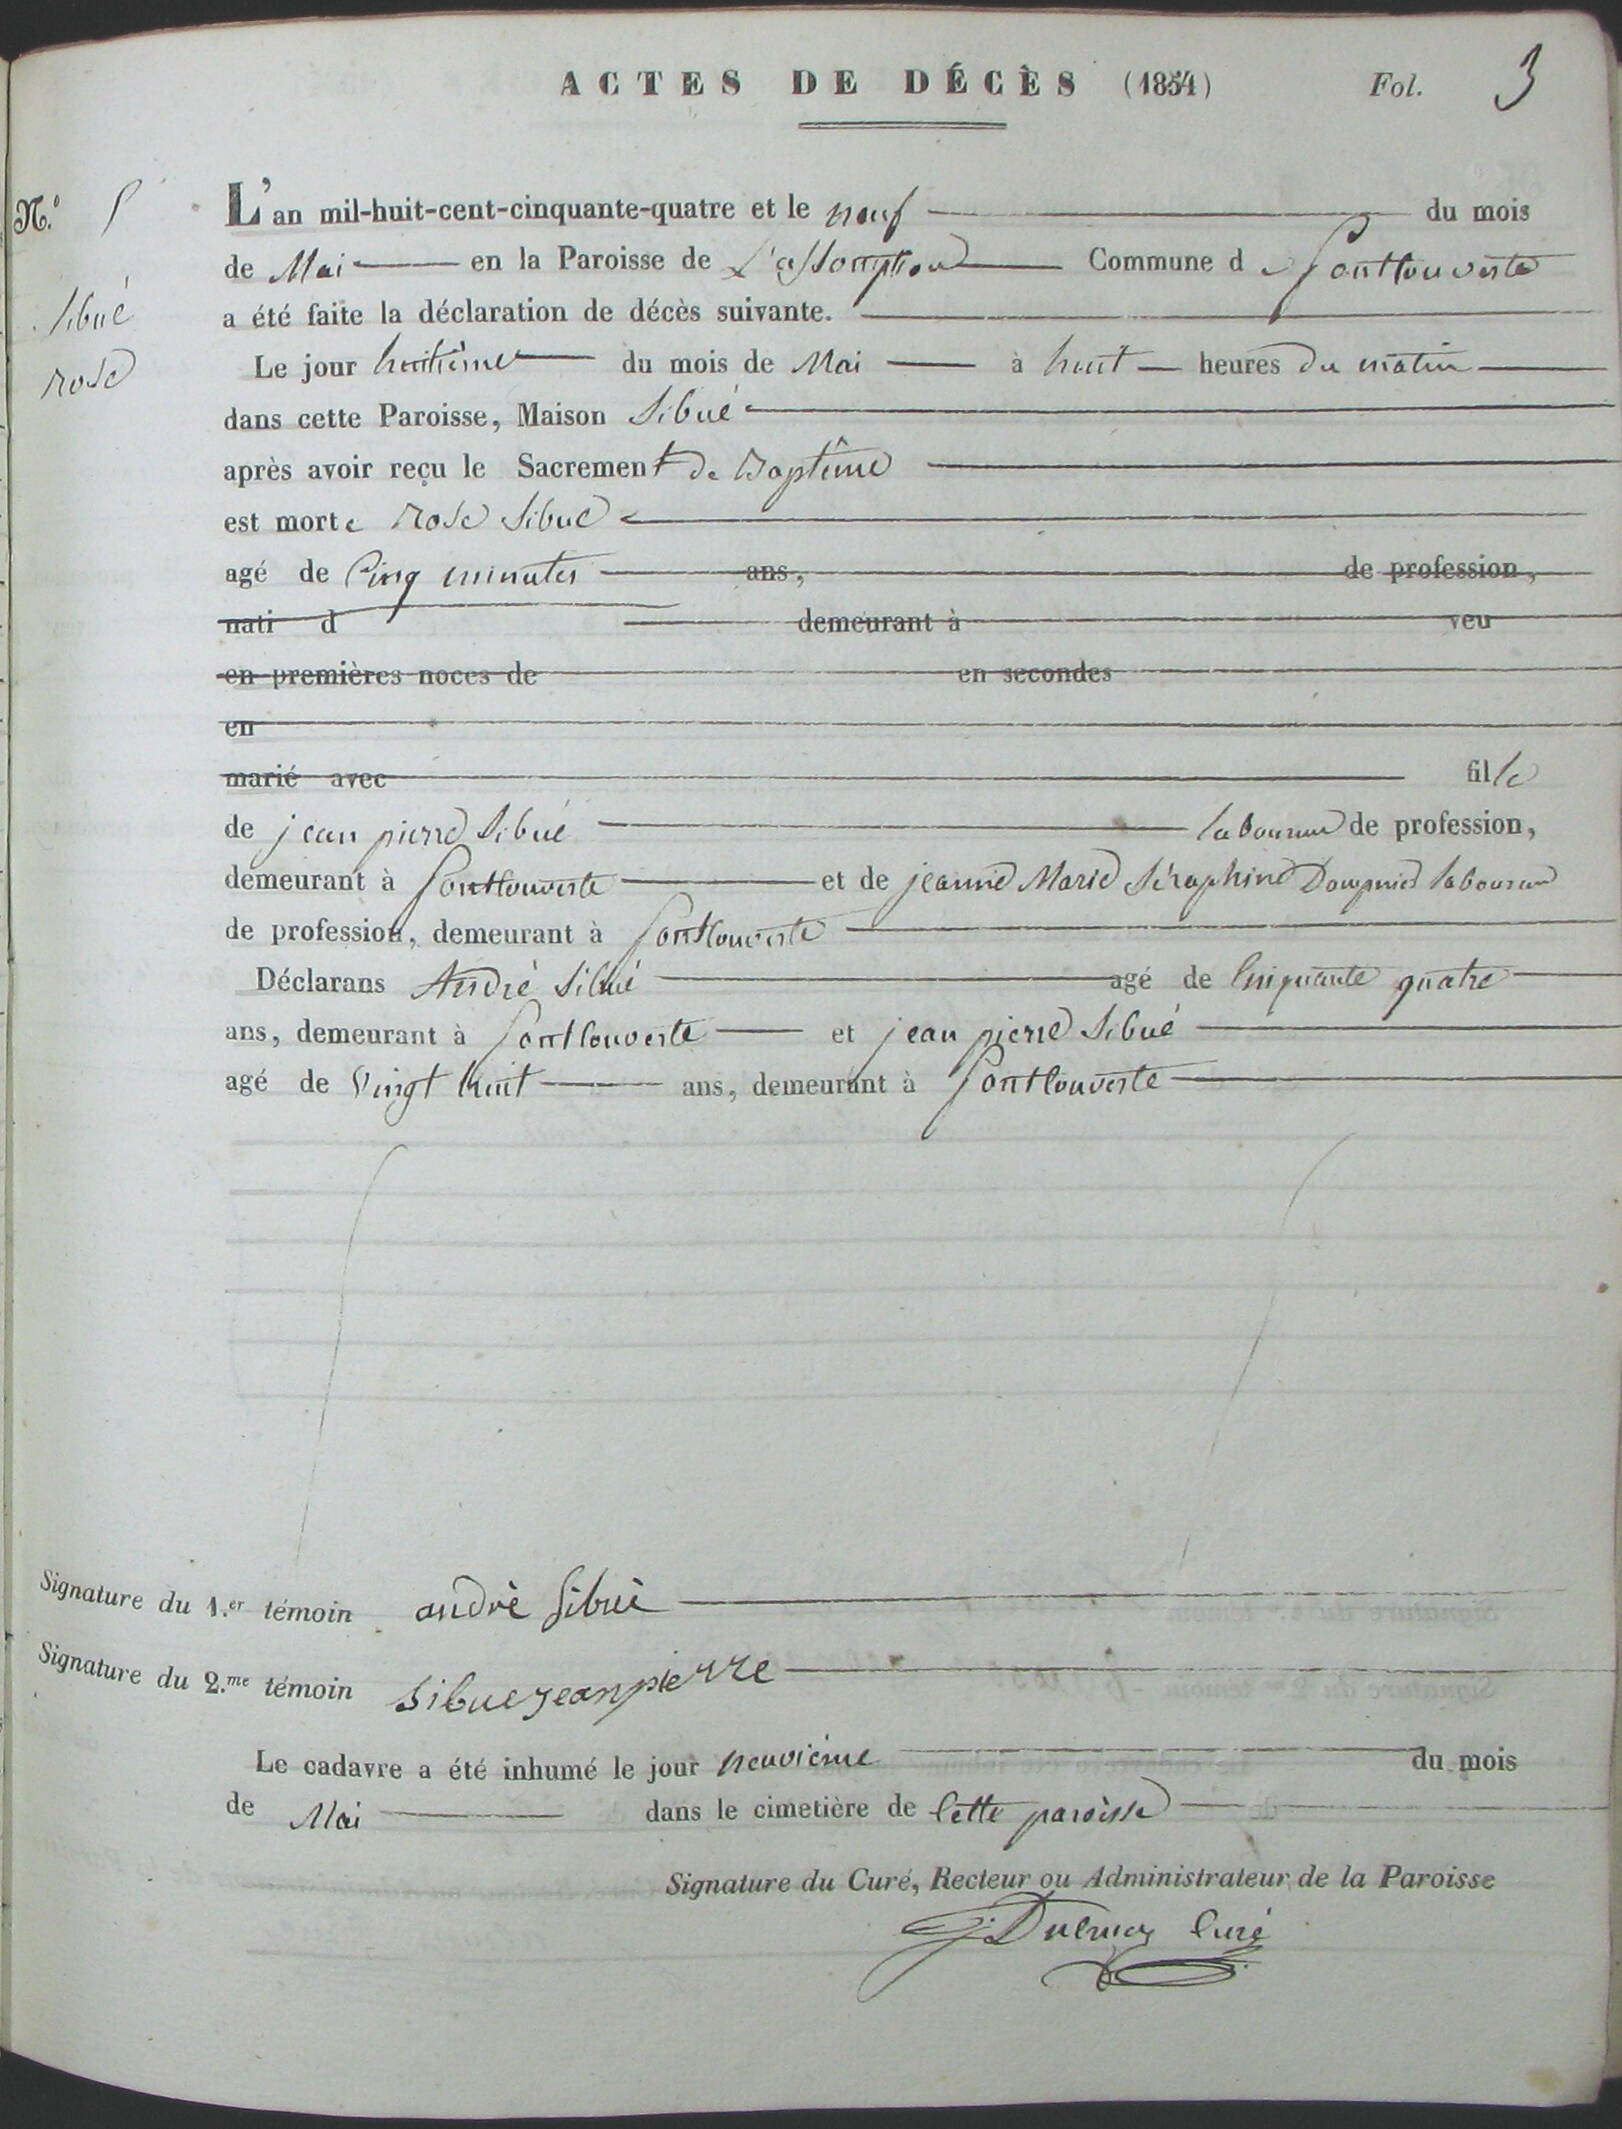 ACTES DE DÉCÈS (1854) Fol. 3
N.o 5
Sibué
rose
L'an mil-huit-cent-cinquante-quatre et le neuf du mois
de Mai en la Paroisse de L'assomption Commune de Fontcouverte
a été faite la déclaration de décès suivante.
Le jour huitième du mois de Mai à huit heures du matin
dans cette Paroisse, Maison Sibué
après avoir reçu le Sacrement de Baptême
est morte rose Sibué
agé de Cinq minutes ans, de profession,
nati d demeurant à veu
en premières noces de en secondes
en
marié avec fille
de jean pierre Sibué laboureur de profession,
demeurant à Fontcouverte et de jeanne Marie Séraphine laboureur
de profession, demeurant à Fontcouverte
Déclarans André Sibué agé de Cinquante quatre
ans, demeurant à Fontcouverte et jean pierre Sibué
agé de Vingt huit ans, demeurant à Fontcouverte
Signature du 1.er témoin andrè Sibuè
Signature du 2.me témoin sibue jeanpierre
Le cadavre a été inhumé le jour neuvième du mois
de Mai dans le cimetière de Cette paroisse
Signature du Curé, Recteur ou Administrateur de la Paroisse
Curé